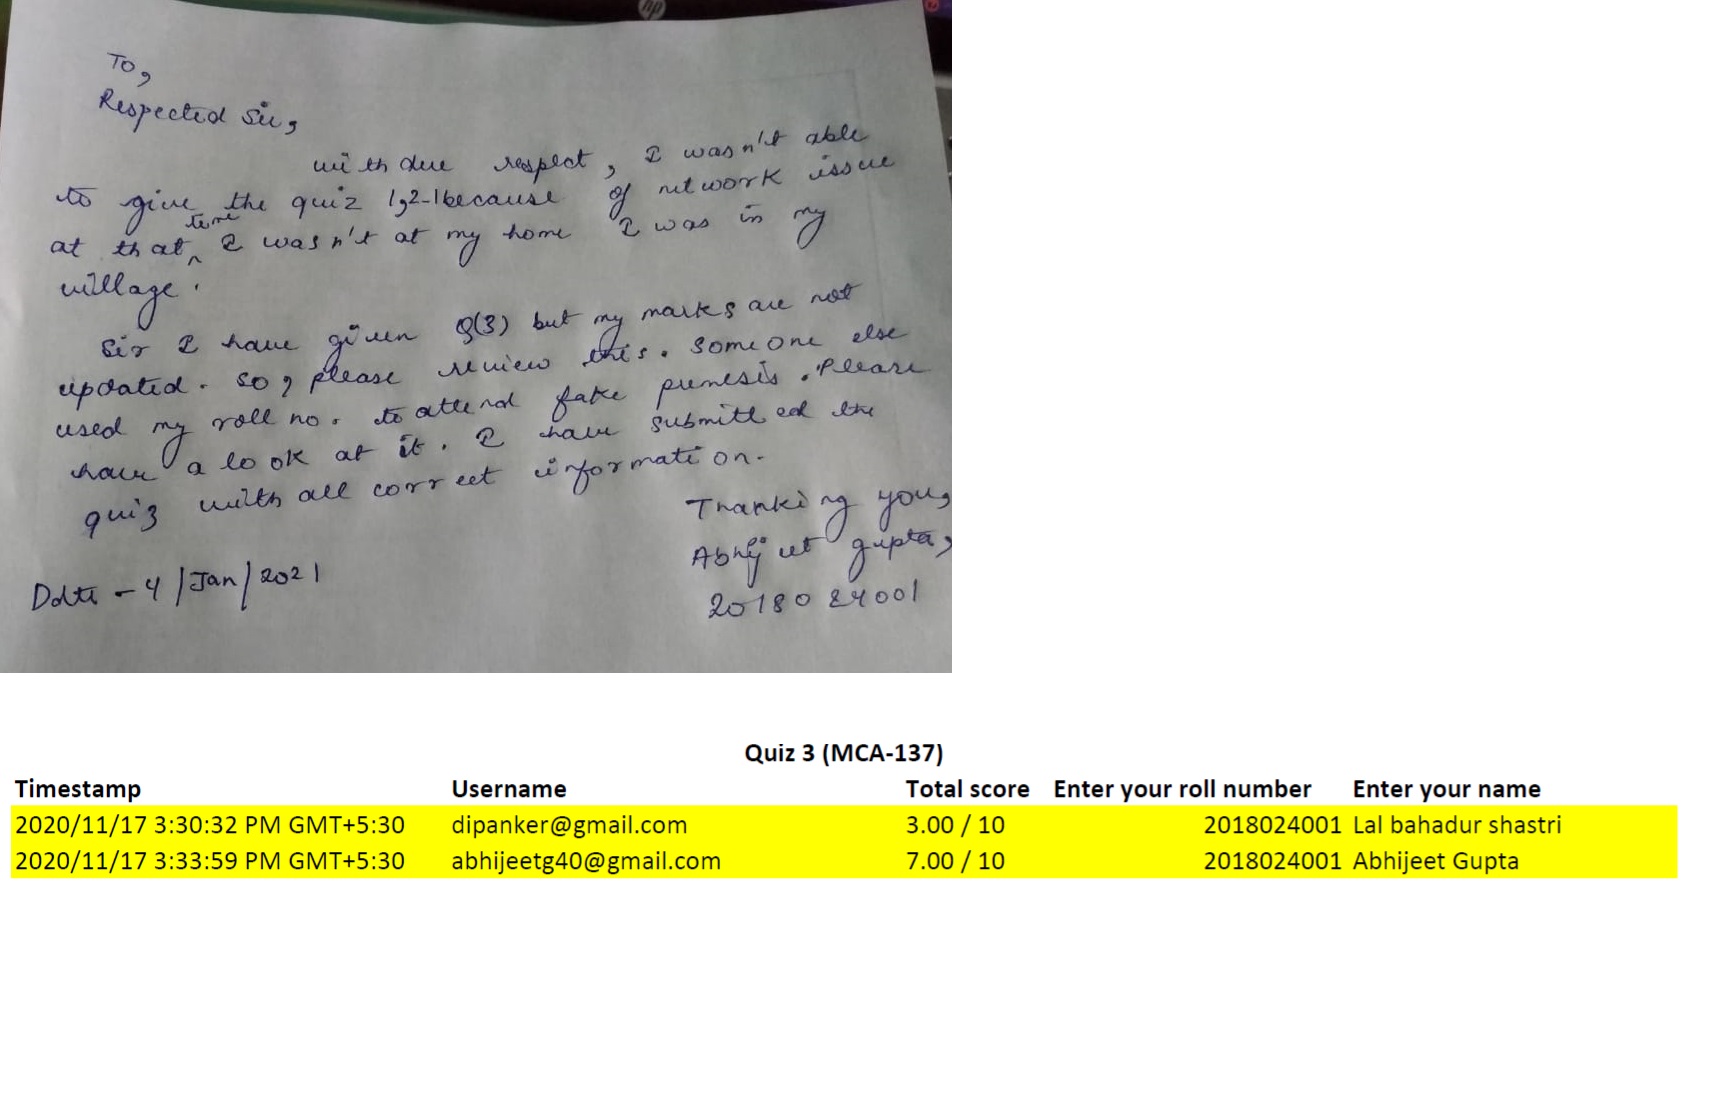 hp
To,
Respected Sir,
with due respect, I wasn't able
to give the quiz 1,2-1 because of network issue
at that time I wasn't at my home I was in my
village.
Sir I have given Q(3) but my marks are not
updated. so, please review this. someone else
used my roll no. to attend fake . Please
have a look at it. I have submitted the
quiz with all correct information.
Thanking you,
Abhijeet gupta,
2018024001
Date - 4/Jan/2021
Quiz 3 (MCA-137)
Timestamp Username Total score Enter your roll number Enter your name
2020/11/17 3:30:32 PM GMT+5:30 dipanker@gmail.com 3.00 / 10 2018024001 Lal bahadur shastri
2020/11/17 3:33:59 PM GMT+5:30 abhijeetg40@gmail.com 7.00 / 10 2018024001 Abhijeet Gupta